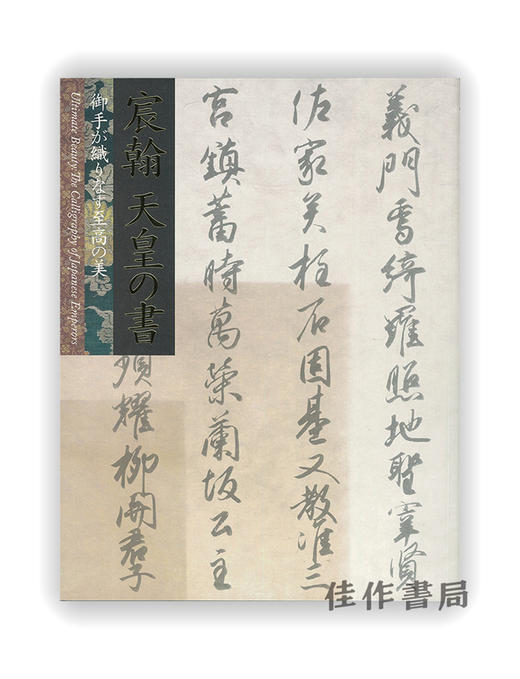 宸翰 天皇の書
御手が織りなす至高の美
Ultimate Beauty: The Calligraphy of Japanese Emperors
義門雪綺羅照地聖主賢
佐家美柱石因基又教准三
宮鎮蓄時萬榮蘭坂公主
頌耀柳開君子
佳作書局